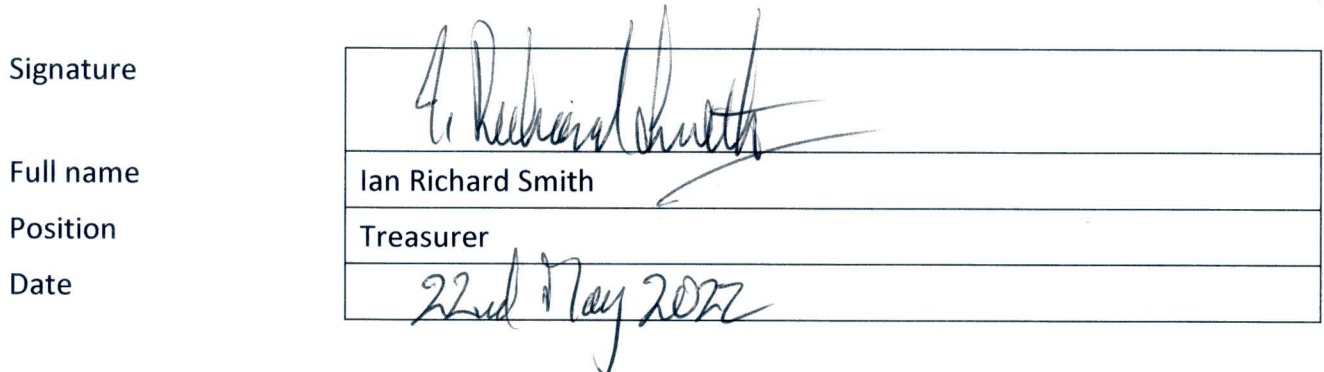 Signature I. Richard Smith
Full name Ian Richard Smith
Position Treasurer
Date 22nd May 2022